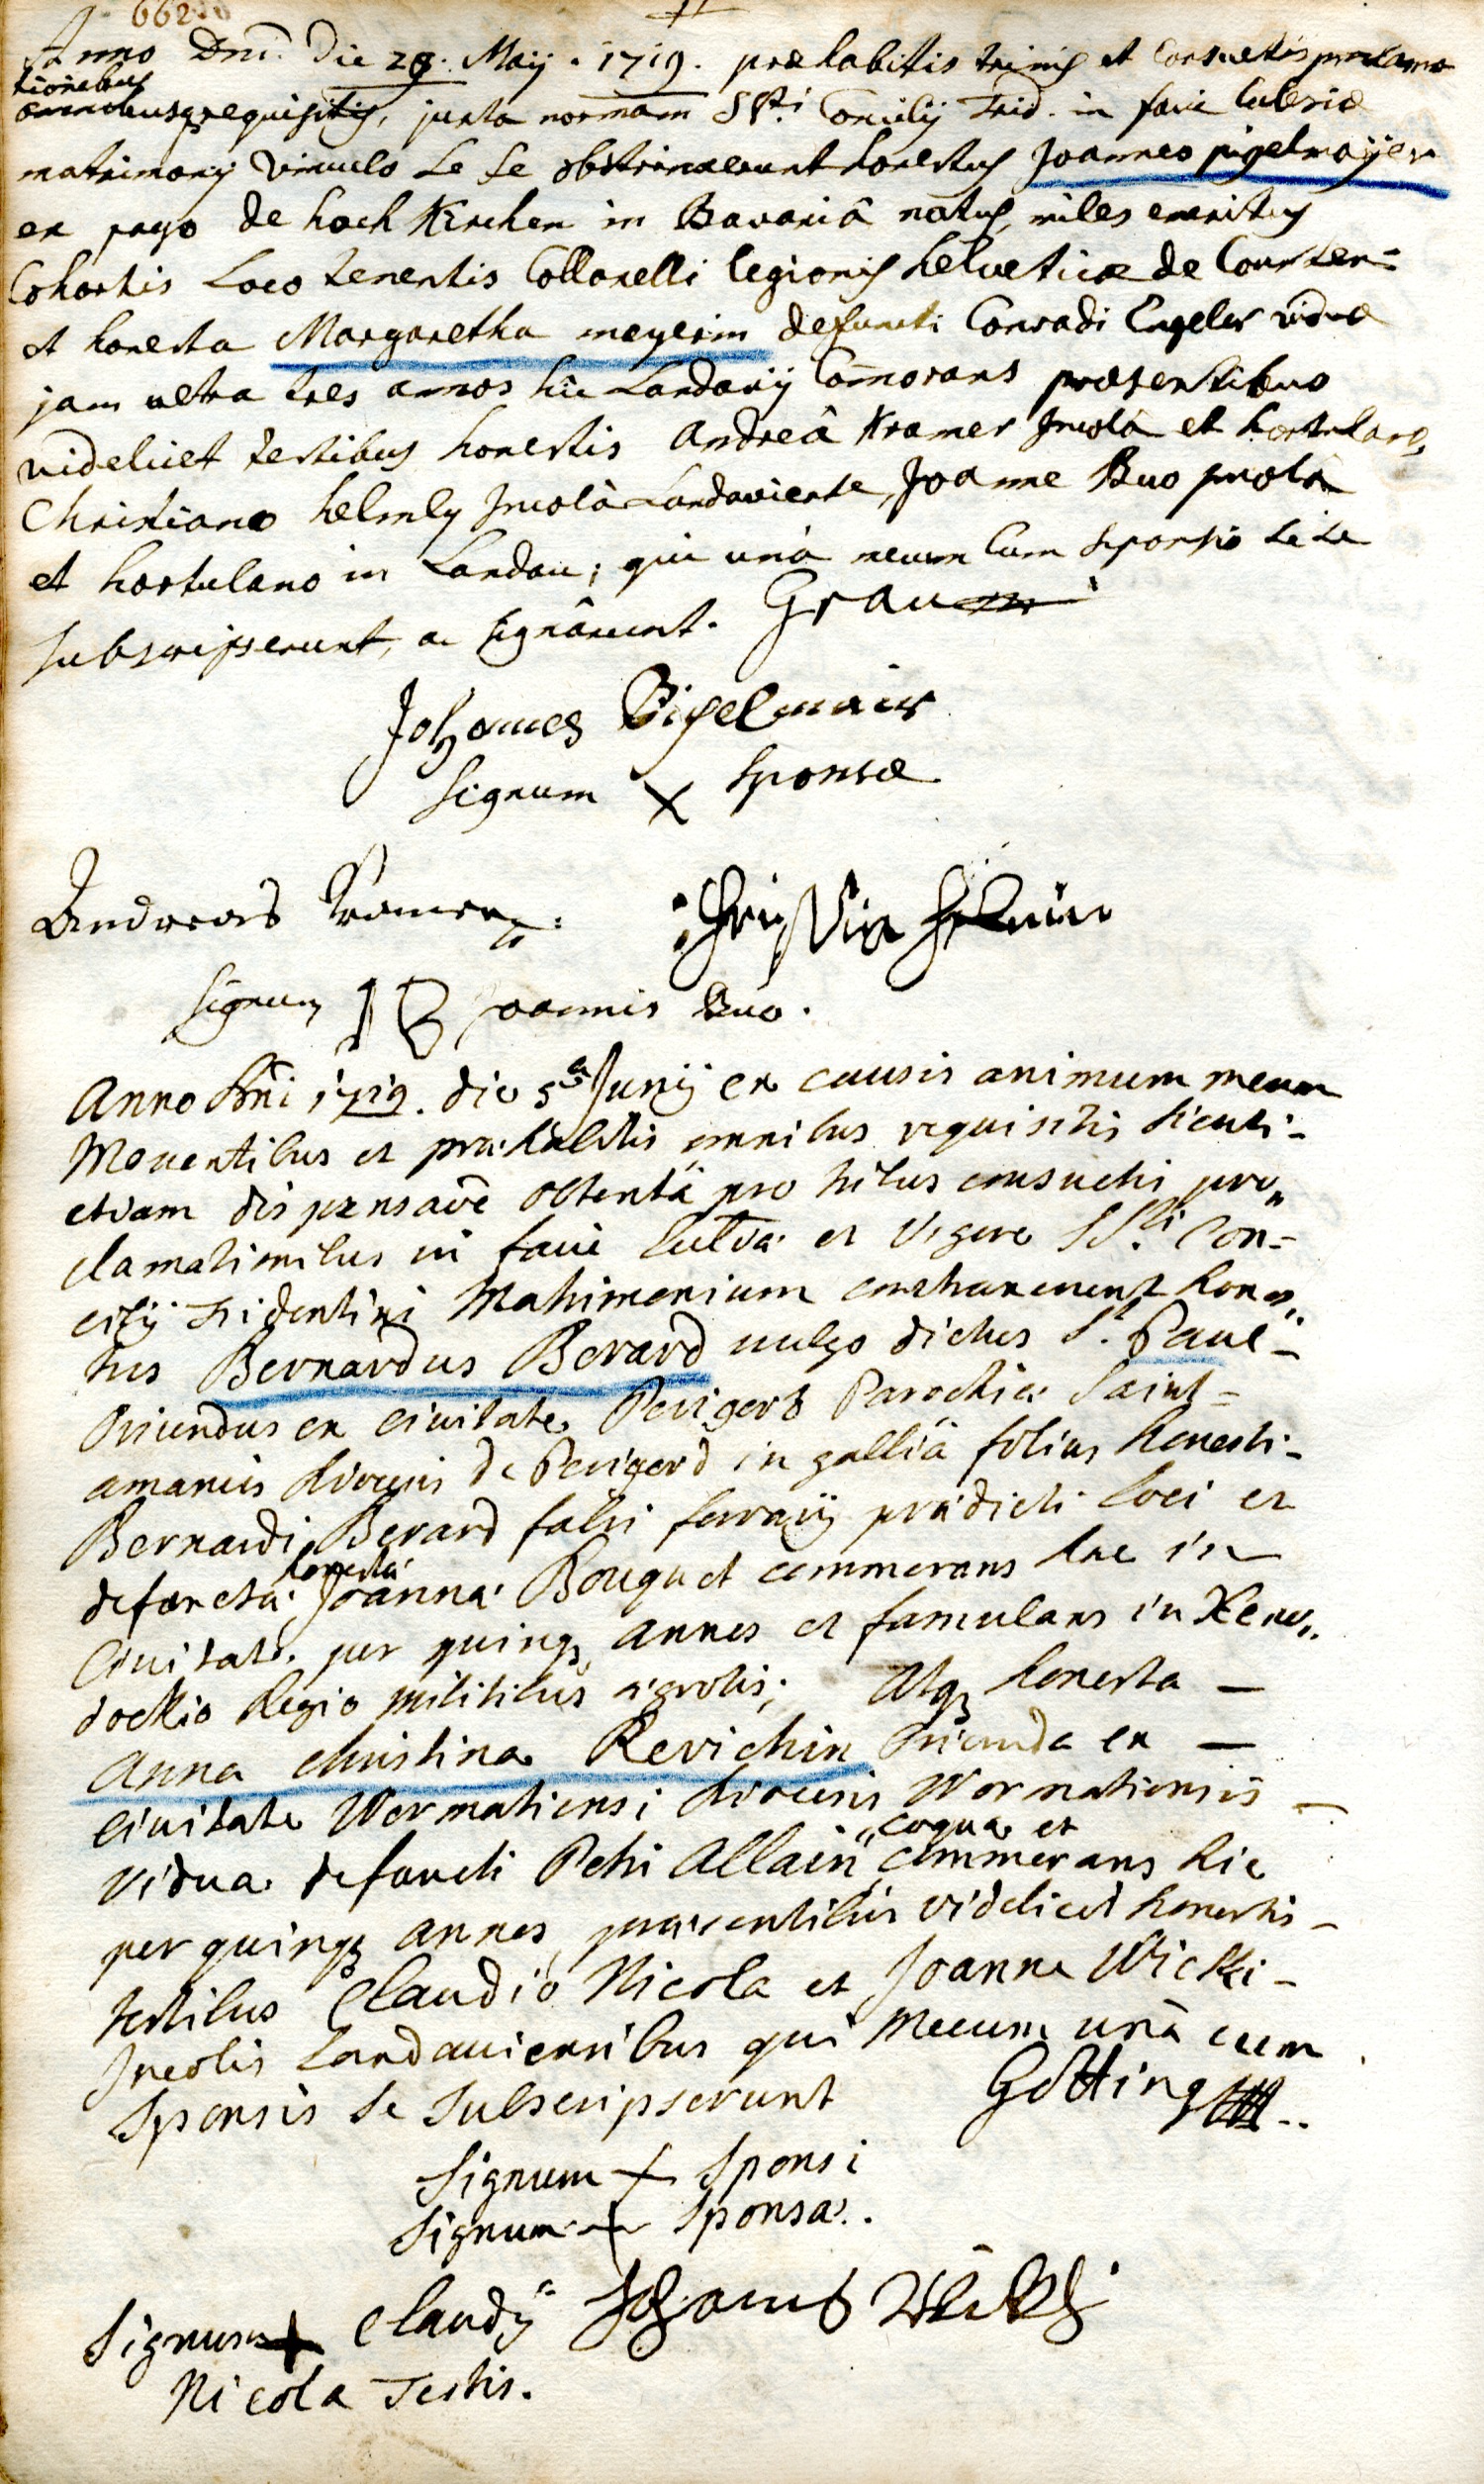 662
Anno Dni. Die 28. Maij. 1719. præhabitis trinis et consuetis proclama
tionibus
omnibusq requisitis, juxta normam SSti Concilij Trid. in facie Ecclesiæ
matrimonij vinculo se se obstrinxerunt honestus Joannes pigelmaijer
ex pago de hoch Kirchen in Bavariâ natus, miles emeritus
Cohortis Loco tenentis Collonelli legionis helveticæ de Courten=
et honesta Margaretha meyerin defuncti Conradi Engeler vidua
jam ultra tres annos hic Landavij Commorans præsentibus
videlicet testibus honestis Andreâ Kramer Incolâ et hortulano,
Christiano helmly Incolâ Landaviense, Joanne Buo Incolâ
et hortulano in Landau; qui unà mecum Cum sponso se se
subscripserunt, ac signârunt. Grau
Johannes Bigelmair
Signum X sponsæ
Andreas Kramer
Christian
Signum IB Joannis Buo.
Anno Dni 1719. die 5a Junij ex causis animum meum
Moventibus et præhabitis omnibus requisitis sicuti-
etiam dispensaõe obtentâ pro tribus consuetis pro„
clamationibus in facie Ecclæ et vigore SSti Con=
cilij Tridentini Matrimonium contraxerunt hones„
tus Bernardus Berard vulgo dictus St. Paul-
Oriundus ex civitate Perigord Parochiæ Saint=
amancis diocesis de Perigord in galliâ filius honesti-
Bernardi Berard fabri ferrarij prædicti loci et
honestæ
defunctæ Joannæ Bouquet commorans hac in
Civitate per quinq annos et famulans in Xeno„
dochio Regio militibus ægrotis; Atq honesta -
Anna Christina Revichin Oriunda ex -
civitate Wormatiensi diocesis Wormatiensis -
coqua et
vidua defuncti Petri Allain„ commorans hic
per quinq annos, præsentibus videlicet honestis -
testibus Claudio Nicola et Joanne Wicki-
Incolis Landaviensibus qui mecum unâ cum
Sponsis se subscripserunt Götting
Signum + Sponsi
Signum + Sponsæ.
Signum + Claudij Johannes Wicki
Nicola Testis.